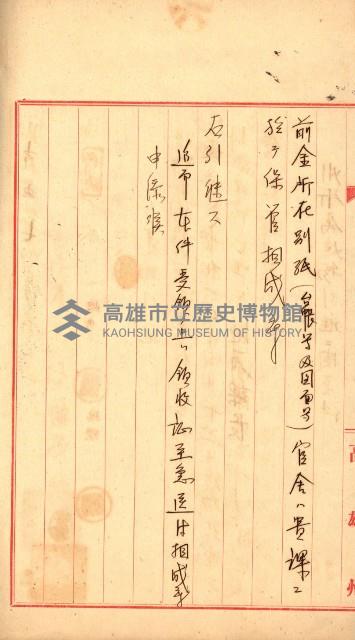 前金所在別紙(台帳号及図面号)官舎ハ貴課ニ
於テ保管相成度
右引継ス
追而本件受領ノ上ハ領收証至急送付相成度
申添候
高雄市立歷史博物館
KAOHSIUNG MUSEUM OF HISTORY
高雄州